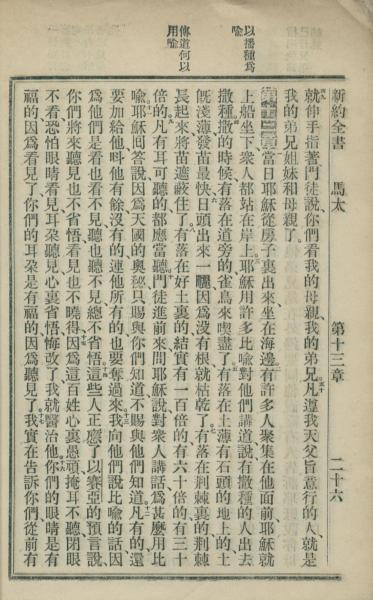 新約全書 馬太 第十三章 二十六
就伸手指著門徒說你們看我的母親我的弟兄凡遵我天父旨意行的人就是
我的弟兄姐妹和母親了
當日耶穌從房子裏出來坐在海邊有許多人聚集在他面前耶穌就
上船坐下衆人都站在岸上耶穌用許多比喻對他們講道說有撒種的人出去
撒種撒的時候有落在道旁的雀鳥來喫盡了有落在土薄有石頭的地上的土
既淺薄發苗最快日頭出來一曬因爲沒有根就枯乾了有落在荆棘裏的荆棘
長起來將苗遮蔽住了有落在好土裏的結實有一百倍的有六十倍的有三十
倍的凡有耳可聽的都應當聽門徒進前來問耶穌說對衆人講話爲甚麽用比
喻耶穌回答說因爲天國的奧秘只賜與你們知道不賜與他們知道凡有的還
要加給他呌他有餘沒有的連他所有的也要奪過來我向他們說比喻的話因
爲他們是看也看不見聽也聽不見總不省悟這些人正應了以賽亞的預言說
你們將來聽見也不省悟看見也不曉得因爲這百姓心裏愚頑掩耳不聽閉眼
不看恐怕眼睛看見耳朶聽見心裏省悟悔改了我就醫治他你們的眼睛是有
福的因爲看見了你們的耳朶是有福的因爲聽見了我實在告訴你們從前有
以播種爲
喻
傳道何以
用喻